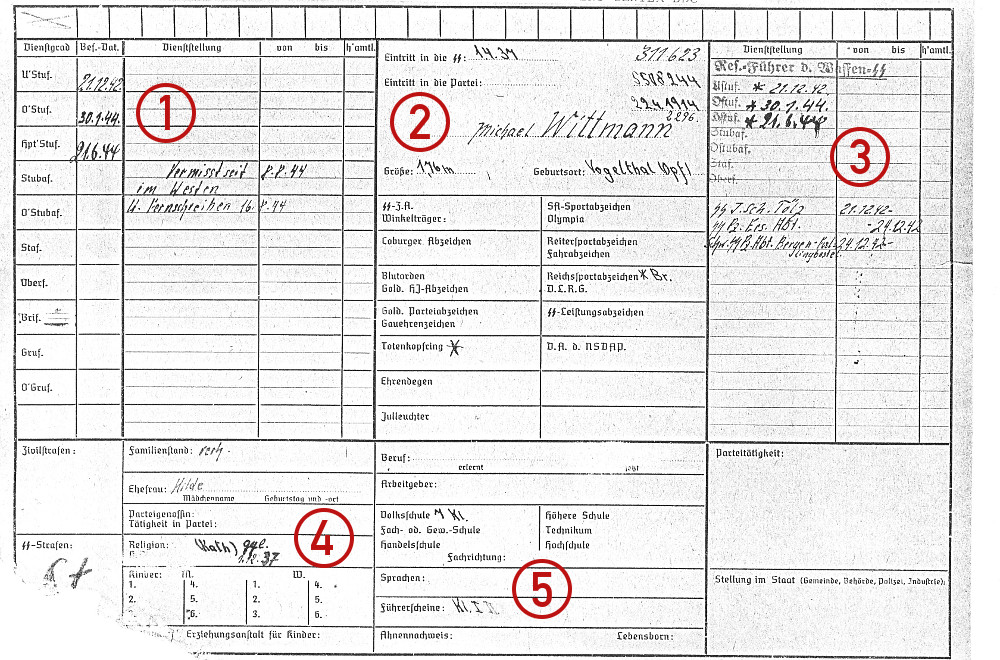 Dienstgrad Bef.-Dat. Dienststellung von bis h'amtl.
U'Stuf. 21.12.42
O'Stuf. 30.1.44.
Hpt'Stuf. 21.6.44
Stubaf. Vermisst seit 8.8.44
im Westen
O'Stubaf. lt. Fernschreiben 16. 8.44
Staf.
Oberf.
Brif.
Gruf.
O'Gruf.
1
Eintritt in die SS: 1.4.37 311623
Eintritt in die Partei: 5508244
22.4.1914
2
Michael Wittmann
Größe: 1,76 m Geburtsort: Vogelthal Opf.
SS-Z.A. SA-Sportabzeichen
Winkelträger: Olympia
Coburger Abzeichen Reitersportabzeichen
Fahrabzeichen
Blutorden Reichssportabzeichen * Br.
Gold. HJ-Abzeichen D.L.R.G.
Gold. Parteiabzeichen SS-Leistungsabzeichen
Gauehrenzeichen
Totenkopfring * D.A. d. NSDAP.
Ehrendegen
Julleuchter
Dienststellung von bis h'amtl.
Res.-Führer d. Waffen-SS
Ustuf. * 21.12.42.
Ostuf. * 30.1.44.
* 21.6.44
Stubaf.
Ostubaf.
Staf.
Oberf.
3
SS J.Sch. Tölz 21.12.42-
SS Pz. Ers. Abt. -24.12.42
24.12.42-
Zivilstrafen:
SS-Strafen:
Familienstand: verh.
Ehefrau: Hilde
Mädchenname Geburtstag und -ort
Parteigenossin:
Tätigkeit in Partei:
Religion: (Kath) ggl.
4
Kinder: M. W.
1. 4. 1. 4.
2. 5. 2. 5.
6. 3. 6.
Erziehungsanstalt für Kinder:
Beruf:
erlernt jetzt
Arbeitgeber:
Volksschule 7 Kl. Höhere Schule
Fach- od. Gew.-Schule Technikum
Handelsschule Hochschule
Fachrichtung:
Sprachen:
5
Führerscheine: Kl. I
Ahnennachweis: Lebensborn:
Parteitätigkeit:
Stellung im Staat (Gemeinde, Behörde, Polizei, Industrie):